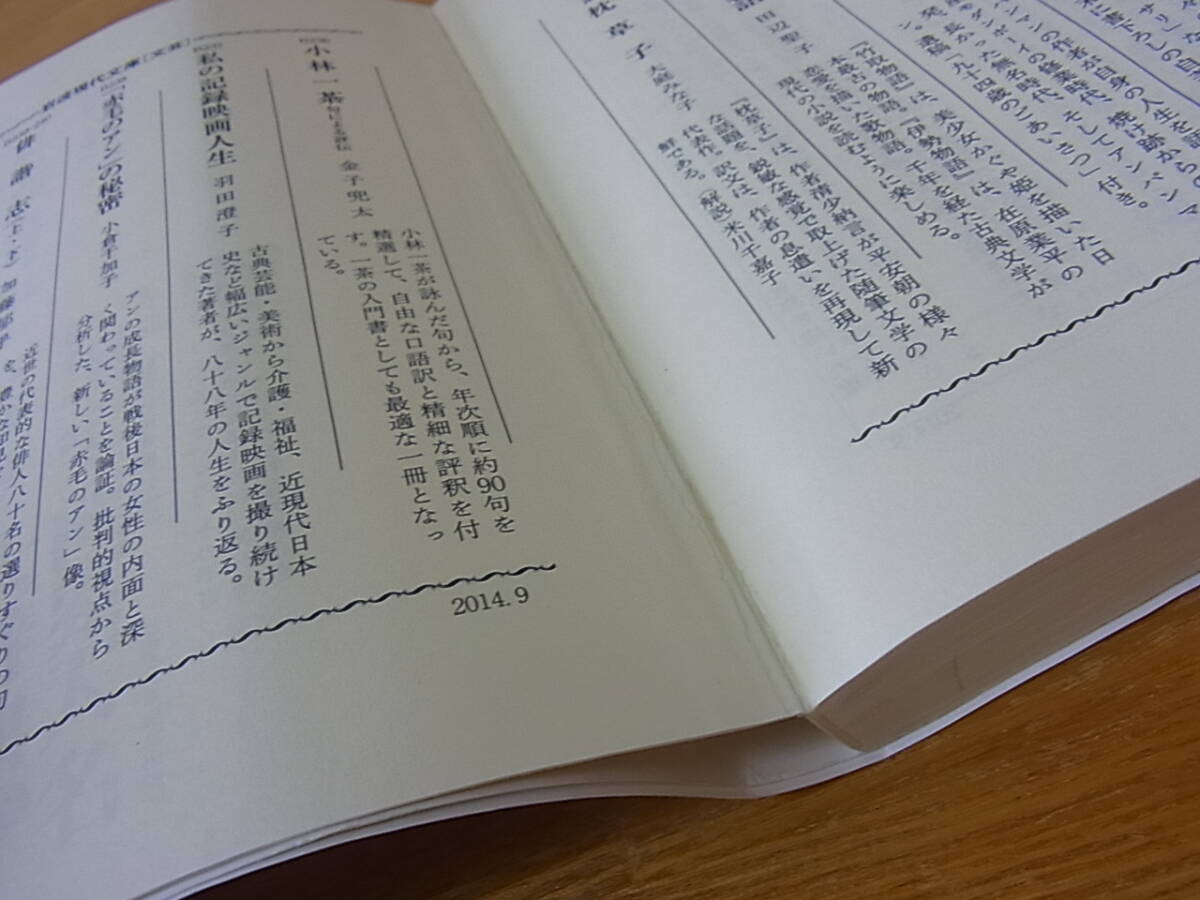 サリー
に書下ろしの自
ンアンの作者が自身の人生を語
ダンボーイの修業時代、焼け跡からの
長かった無名時代、そしてアンパンマ
発。遺稿「九十四歳のごあいさつ」付き。
田辺聖子
『竹取物語』は、美少女かぐや姫を描いた日
本最古の物語。『伊勢物語』は、在原業平の
恋愛を描いた歌物語。千年を経た古典文学が
現代の小説を読むように楽しめる。
枕草子
大庭みな子
『枕草子』は、作者清少納言が平安朝の様々
な話題を、鋭敏な感覚で取上げた随筆文学の
代表作。訳文は、作者の息遣いを再現して新
鮮である。〈解説〉米川千嘉子
岩波現代文庫[文芸]
小林一茶
句による評伝
金子兜太
小林一茶が詠んだ句から、年次順に約90句を
精選して、自由な口語訳と精細な評釈を付
す。一茶の入門書としても最適な一冊となっ
ている。
私の記録映画人生
羽田澄子
古典芸能・美術から介護・福祉、近現代日本
史など幅広いジャンルで記録映画を撮り続け
てきた著者が、八十八年の人生をふり返る。
「赤毛のアン」の秘密
小倉千加子
アンの成長物語が戦後日本の女性の内面と深
く関わっていることを論証。批判的視点から
分析した、新しい「赤毛のアン」像。
俳諧志(上・下)
加藤郁乎
近世の代表的な俳人八十名の選りすぐりの句
を、豊かな知見
2014.9